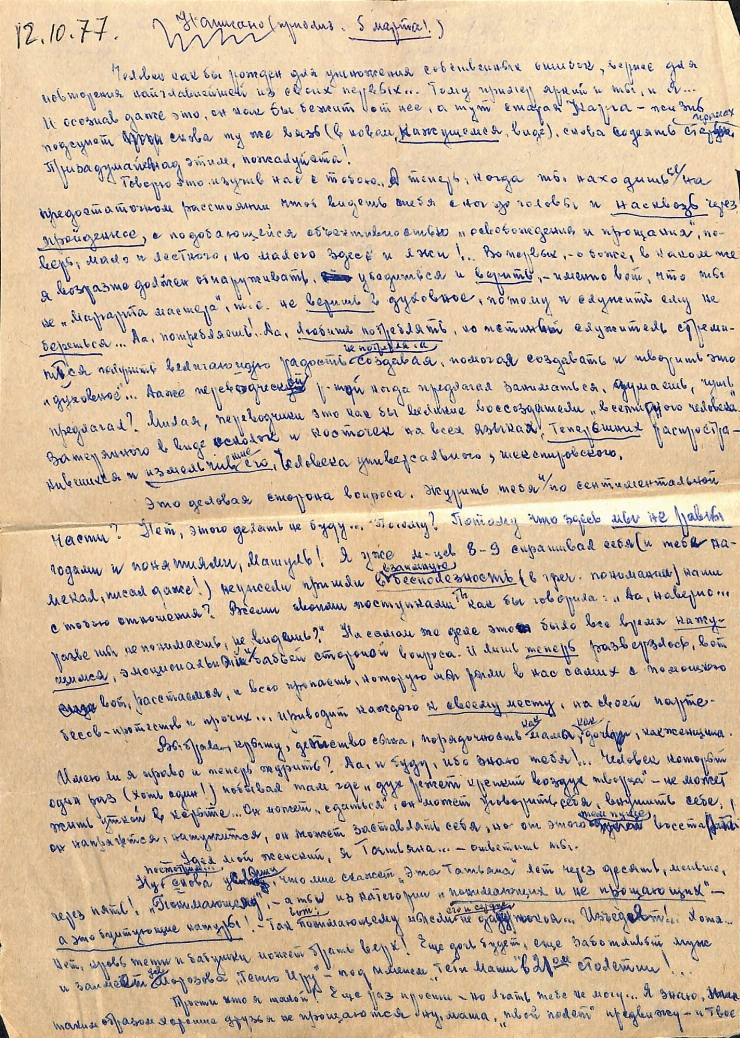 12.10.77. Написано (приблиз. 5 марта!)
Человек как бы рожден для умножения собственных ошибок, вернее для
повторения наиглавнейшей из своих первых... Тому пример яркий и ты, и я...
И осознав даже это, он как бы бежит от нее, а тут старая Карга – жизнь
подсунет снова ту же вязь (в новом, кажущемся, виде), снова содеять
промах
Призадумайся над этим, пожалуйста!
Говорю это изучив нас с тобою. А теперь, когда ты находишься на
предостаточном расстоянии чтоб видеть себя с ног до головы и насквозь через
пройденное, с подобающейся объективностью „освобождения и прощания“, по-
верь, мало и лестного, но малого здесь и лжи!.. Во первых, – о боже, в каком же
я возрасте должен обнаруживать, убедиться и верить, – именно вот, что ты
не „Маргарита мастера“, т.е. не веришь в духовное, потому и служить ему не
берешься... Да, потребляешь. Да, любишь потреблять, но истинный служитель стреми-
тся получить величайшую радость создавая, помогая создавать и творить это
не потребляя
„духовное“... Даже переводческой когда предлагал заниматься, думаешь, чушь
предлагал? Милая, переводчики это как бы великие воссоздатели „всеитного человека“
затерянного в виде осколок и косточек на всех языках, теперешних распростра-
нившихся и измельчивших его, Человека универсального, шекспировского.
Это деловая сторона вопроса. Журить тебя и по сентиментальной
части? Нет, этого делать не буду... Почему? Потому что здесь мы не равны
годами и понятиями, Машуль! Я уже м-цев 8-9 спрашивал себя (и тебе на-
мекал, писал даже!) неужели пришли в бесполезность (в греч. понимании) наши
взаимную
с тобою отношения? Всеми своими поступками ты как бы говорила: „Да, наверно...
разве ты не понимаешь, не видишь?“ На самом же деле это было все время кажу-
щимся, эмоциональной бабьей стороной вопроса. И лишь теперь разверзлось, вот
вот, расстаемся, и всю пропасть, которую мы рыли в нас самих с помощью
бесов-интеств и прочих... приводит каждого к своему месту, на своей парте
Выбрала крышу, детство сына, порядочность как мама, как дочери, как женщина.
Имею ли я право и теперь журить? Да, и буду, ибо знаю тебя!... Человек который
один раз (хоть один!) побывал там где „дух режет крепкий воздух творца“ – не может
жить уткой в корыте... Он может „сдаться“, он может уговорить себя, внушить себе,
он напряжется, натужится, он может заставлять себя, но от этого восстанет
тем пуще
Удел мой женский, я Татьяна... – ответишь ты.
Ну, снова что мне скажет „эта Татьяна“ лет через десять, меньше,
постоим...
через пять! „Понимающею“, – а ты из категории „понимающих и не прощающих“ –
а это бунтующие натуры! – Так понимающему мысли не
Изъедет!.. Хотя...
нет, кровь жены и бабушки может брать верх! Еще дом будет, еще заботливый муж
и займет Морозова „Тетю Иру“ – под именем „тети Маши“ в 21ом столетии!...
Прости что я такой! Еще раз прости – но лгать тебе не могу... Я знаю,
таким образом хорошие друзья не прощаются ну, Маша, „твой полет“ предвижу – и твое